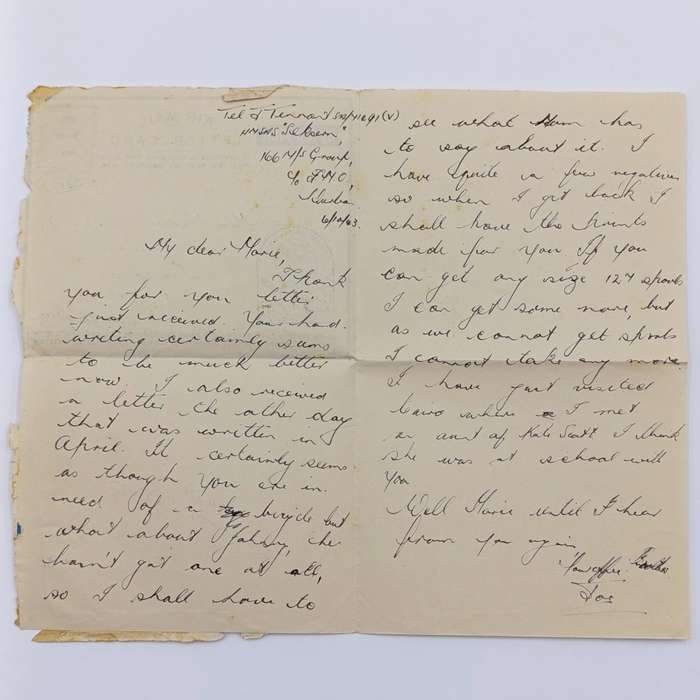 Tel J Tennant
HMSAS "Seksern",
166 M/S Group,
c/o F.M.O,
Durban
6/10/43.
My dear Marie,
Thank
you for you letter
just received. Your hand-
writing certainly seems
to be much better
now. I also received
a letter the other day
that was written in
April. It certainly seems
as though you are in
need of a bicycle but
what about Johnny, he
hasn't got one at all,
so I shall have to
see what Mum has
to say about it. I
have quite a few negatives
so when I get back I
shall have the prints
made for you If you
can get any size 127 spools
I can get some more, but
as we cannot get spools
I cannot take any more
I have just visited
Cairo where I met
an aunt of Kate Scott I think
she was at school with
you
Well Marie until I hear
from you again
Your affec. Brother